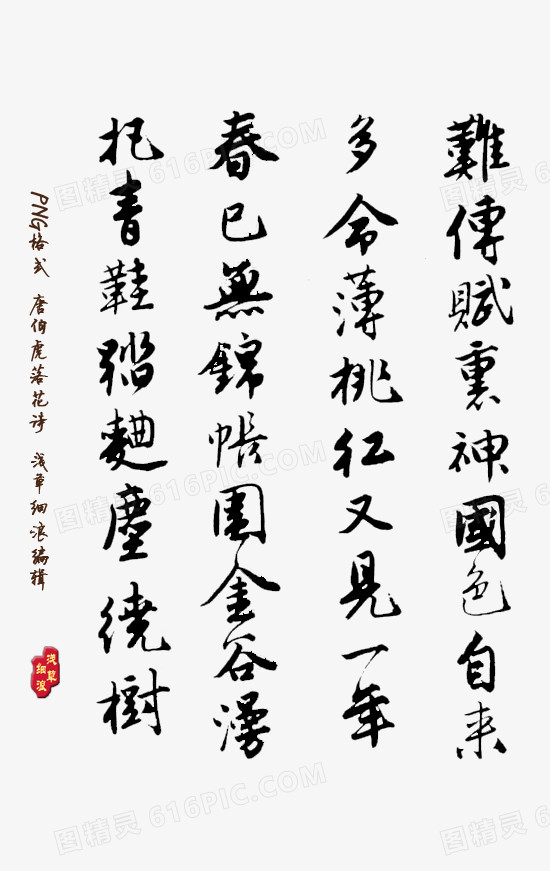 難傳賦裏神國色自来
多命薄桃红又見一年
春已無錦帳圍金谷漫
把青鞋踏麯塵繞樹
PNG格式 唐伯虎落花诗 浅草细浪编辑
浅草
细浪
图精灵 616PIC.COM